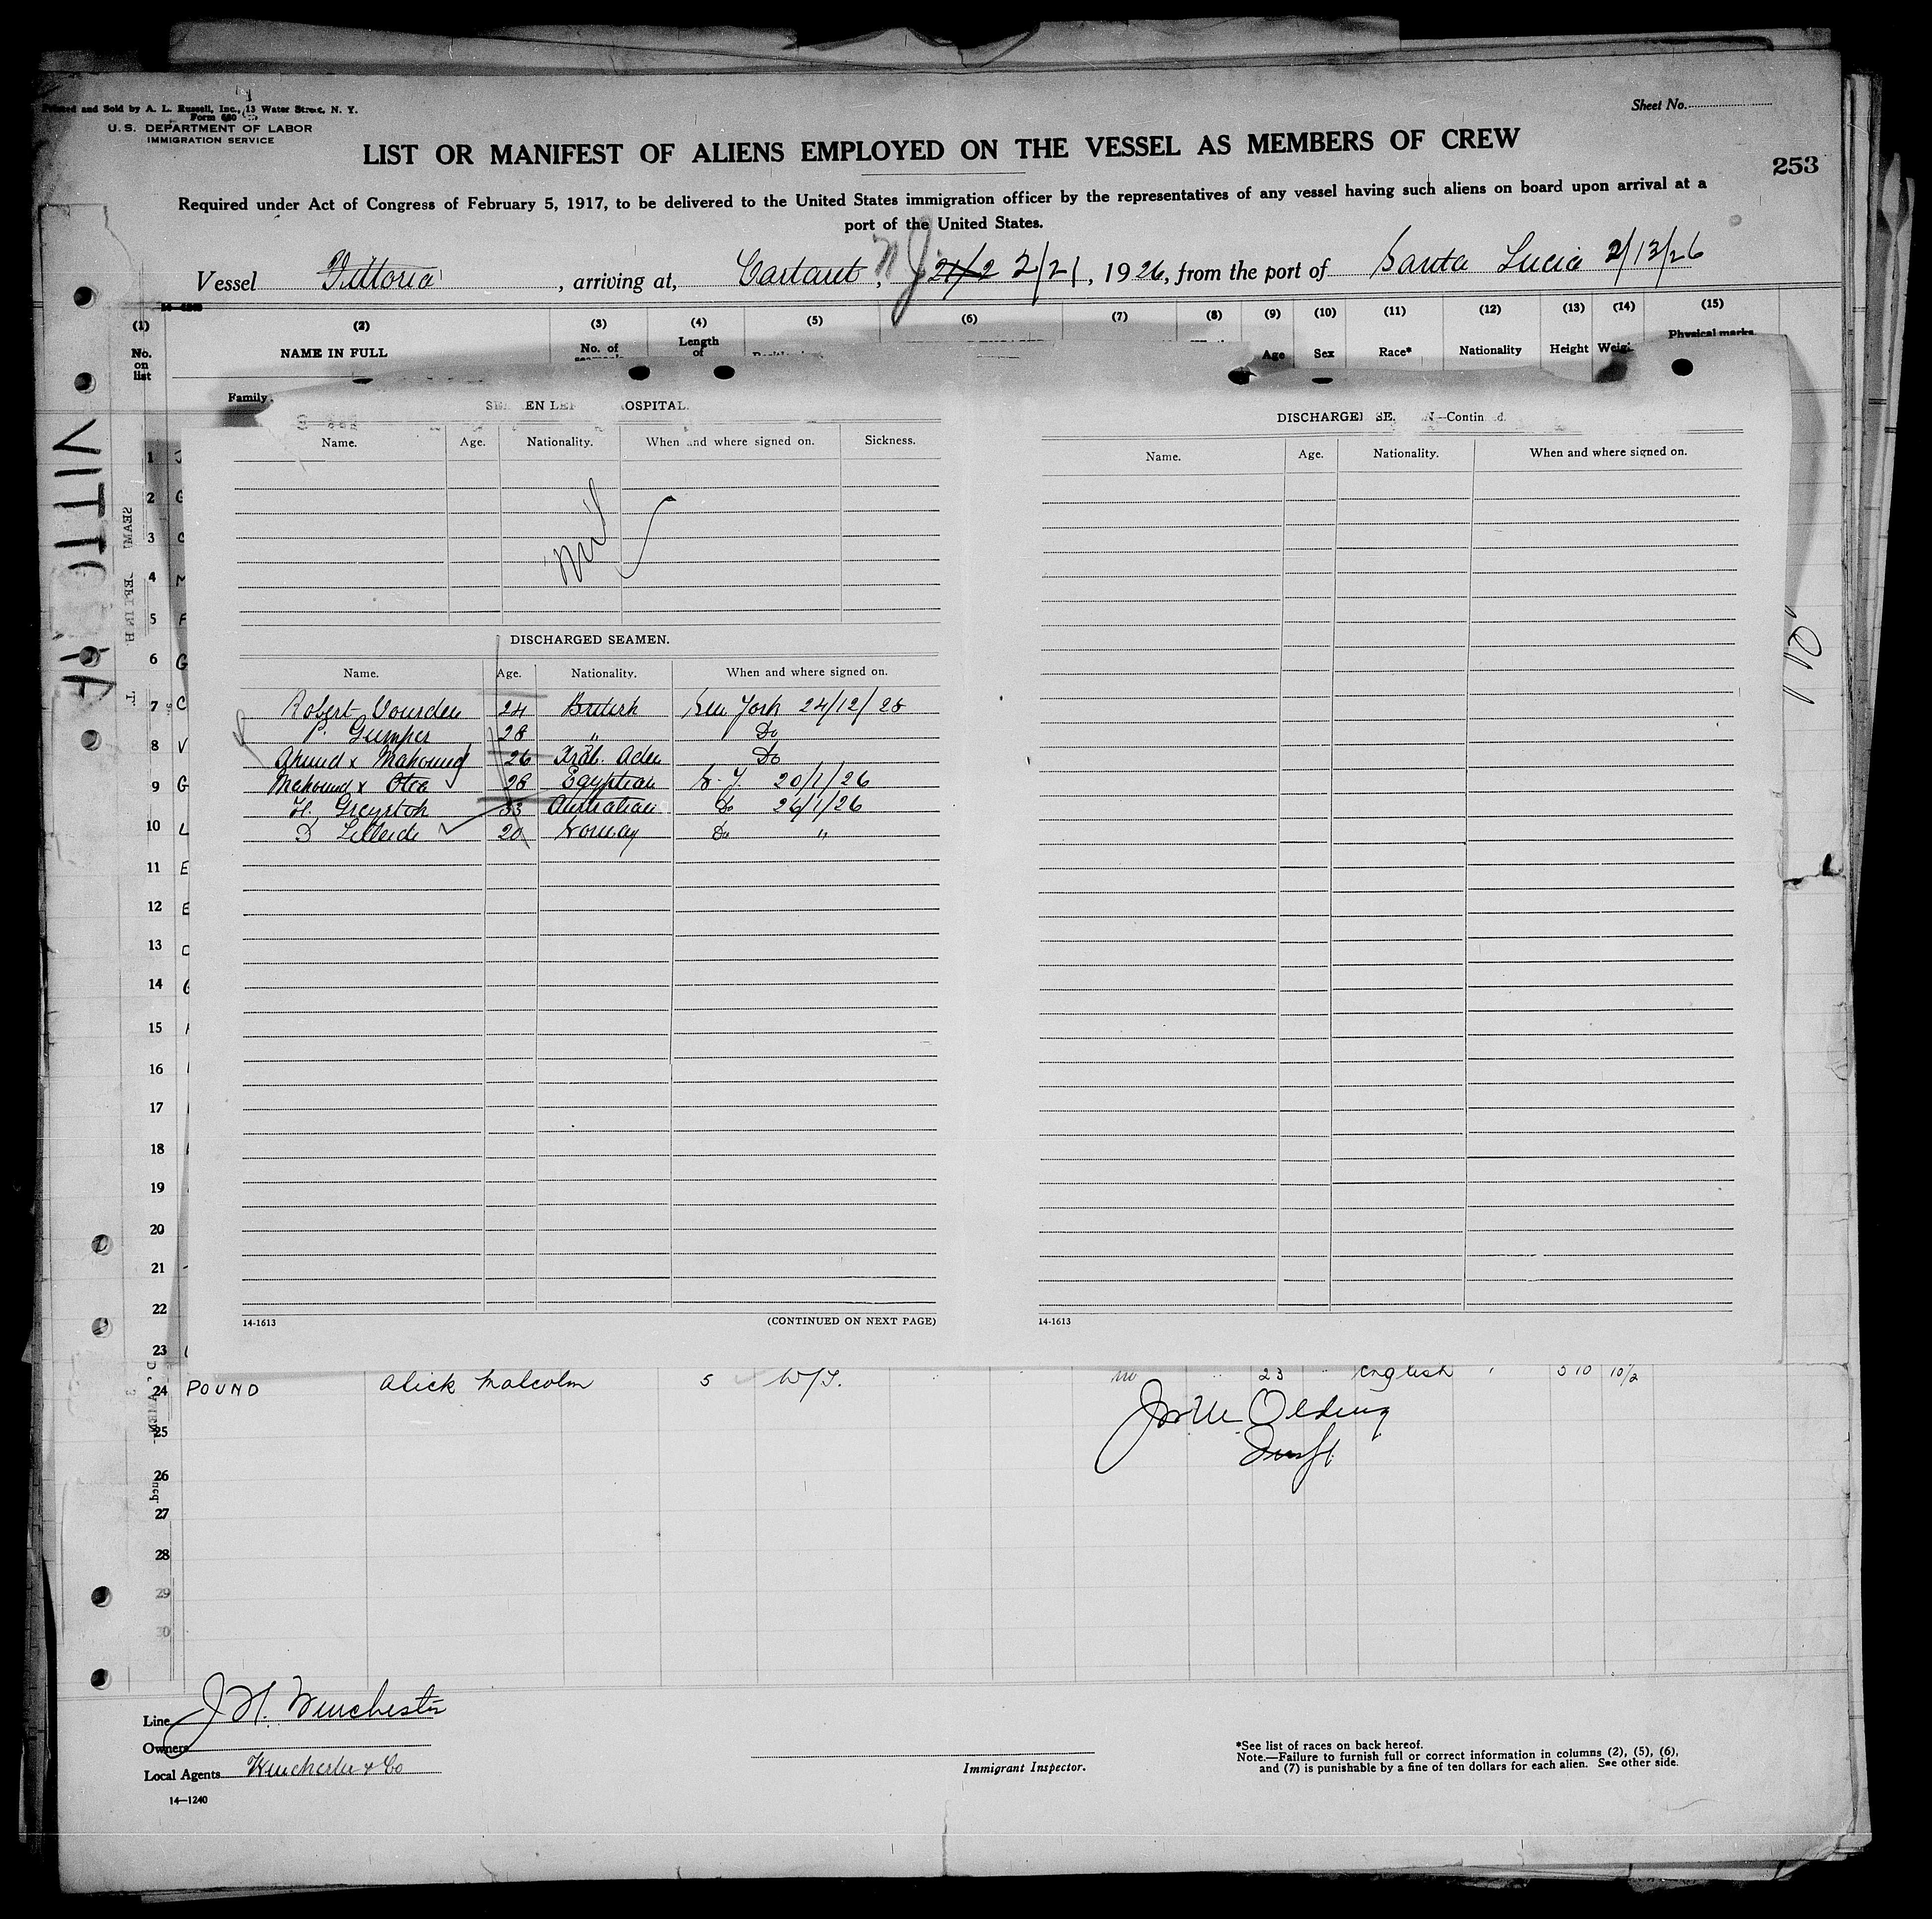 Printed and Sold by A. L. Russell, Inc., 13 Water Street, N. Y.
Form 680
U. S. DEPARTMENT OF LABOR
IMMIGRATION SERVICE
Sheet No.
LIST OR MANIFEST OF ALIENS EMPLOYED ON THE VESSEL AS MEMBERS OF CREW
253
Required under Act of Congress of February 5, 1917, to be delivered to the United States immigration officer by the representatives of any vessel having such aliens on board upon arrival at a
port of the United States.
Vessel Vittoria, arriving at, Cartaret, NJ 2/21, 1926, from the port of Santa Lucia 2/13/26
(1) (2) (3) (4) (5) (6) (7) (8) (9) (10) (11) (12) (13) (14) (15)
No. on list NAME IN FULL No. of Length of Age Sex Race* Nationality Height Physical marks
Family
VITTORIA
SEAMEN LEFT HOSPITAL.
Name. Age. Nationality. When and where signed on. Sickness.
nil
DISCHARGED SEAMEN.
Name. Age. Nationality. When and where signed on.
Robert 24 British New York 24/12/25
P. Gumper 28 " Do
Ahmed x Mahomed 26 Arab. Aden Do
Mahomed x 28 Egyptian N. Y. 20/1/26
H. 33 Australian Do 26/1/26
D 20 Norway Do "
14-1613
(CONTINUED ON NEXT PAGE)
DISCHARGED SEAMEN—Continued.
Name. Age. Nationality. When and where signed on.
14-1613
1
2
3
4
5
6
7
8
9
10
11
12
13
14
15
16
17
18
19
20
21
22
23
24 POUND Alick Malcolm 5 W/T. no 23 English 5 10
25
26
27
28
29
30
Line J. H. Winchester
Owners
Local Agents Winchester & Co
14—1240
Immigrant Inspector.
*See list of races on back hereof.
Note.—Failure to furnish full or correct information in columns (2), (5), (6),
and (7) is punishable by a fine of ten dollars for each alien. See other side.